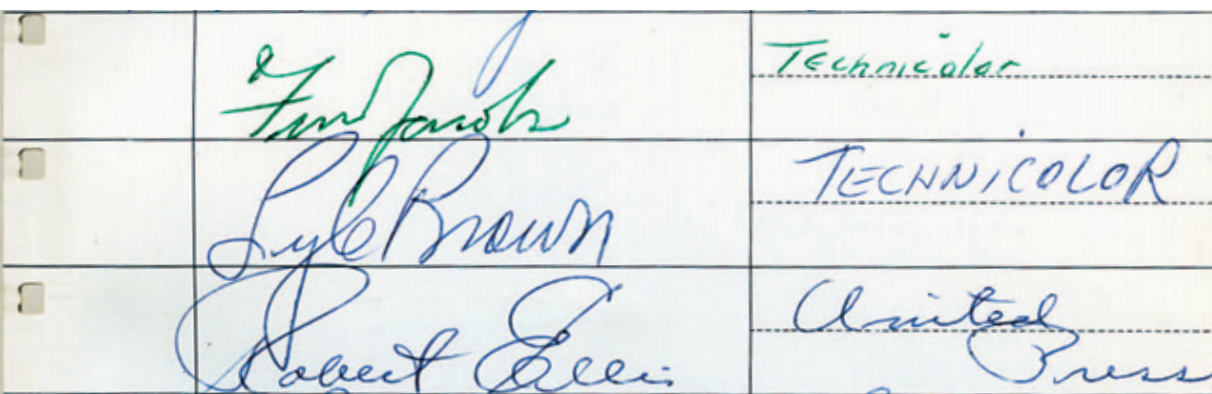 Jacobs Technicolor
Lyle Brown TECHNICOLOR
Robert Ellis United
Press